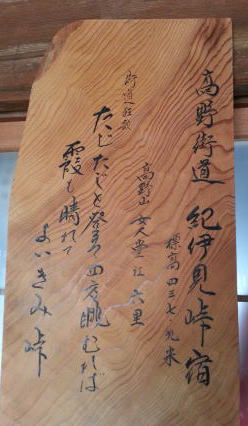 高野街道 紀伊見峠宿
標高四三七九米
高野山 女人堂江 六里
街道狂歌
たじたじと登る 四方眺むれば
霞も晴れて
よいきみ峠